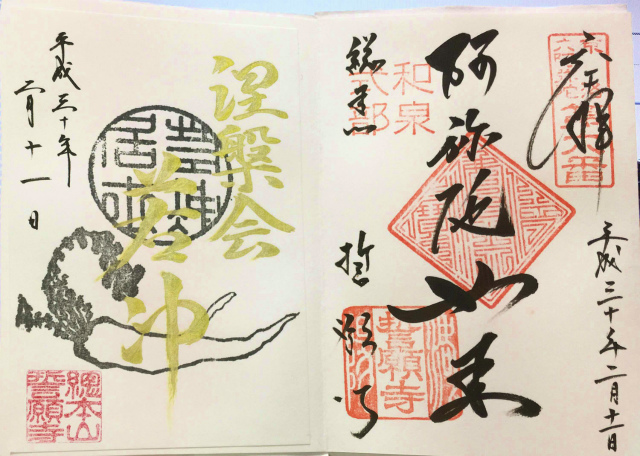 奉拝
平成三十年二月十一日
阿弥陀如来
和泉
式部
総本山
誓願寺
誓願寺
涅槃会
若冲
平成三十年
二月十一日
總本山
誓願寺